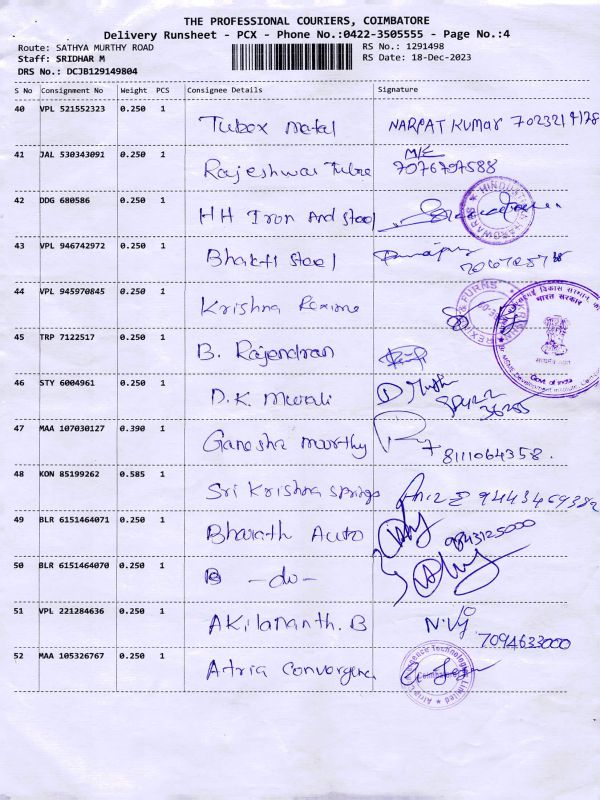 THE PROFESSIONAL COURIERS, COIMBATORE
Delivery Runsheet - PCX - Phone No.:0422-3505555 - Page No.:4
Route: SATHYA MURTHY ROAD RS No.: 1291498
Staff: SRIDHAR M RS Date: 18-Dec-2023
DRS No.: DCJB129149804
S No Consignment No Weight PCS Consignee Details Signature
40 VPL 521552323 0.250 1 Tubex metal NARPAT KUMAR
41 JAL 530343091 0.250 1 Rajeshwar Tube 7076707588
42 DDG 680586 0.250 1 HH Iron And Steel
43 VPL 946742972 0.250 1 Bhakti steel
44 VPL 945970845 0.250 1 Krishna Rexine
45 TRP 7122517 0.250 1 B. Rajendran
46 STY 6004961 0.250 1 D.K. Mwali
47 MAA 107030127 0.390 1 Ganesha moorthy 8111064358.
48 KON 85199262 0.585 1 Sri Krishna springs
49 BLR 6151464071 0.250 1 Bharath Auto 9843125000
50 BLR 6151464070 0.250 1 B - do -
51 VPL 221284636 0.250 1 AKilananth. B 7094633000
52 MAA 105326767 0.250 1 Atria Convergence
भारत सरकार
Govt. of India